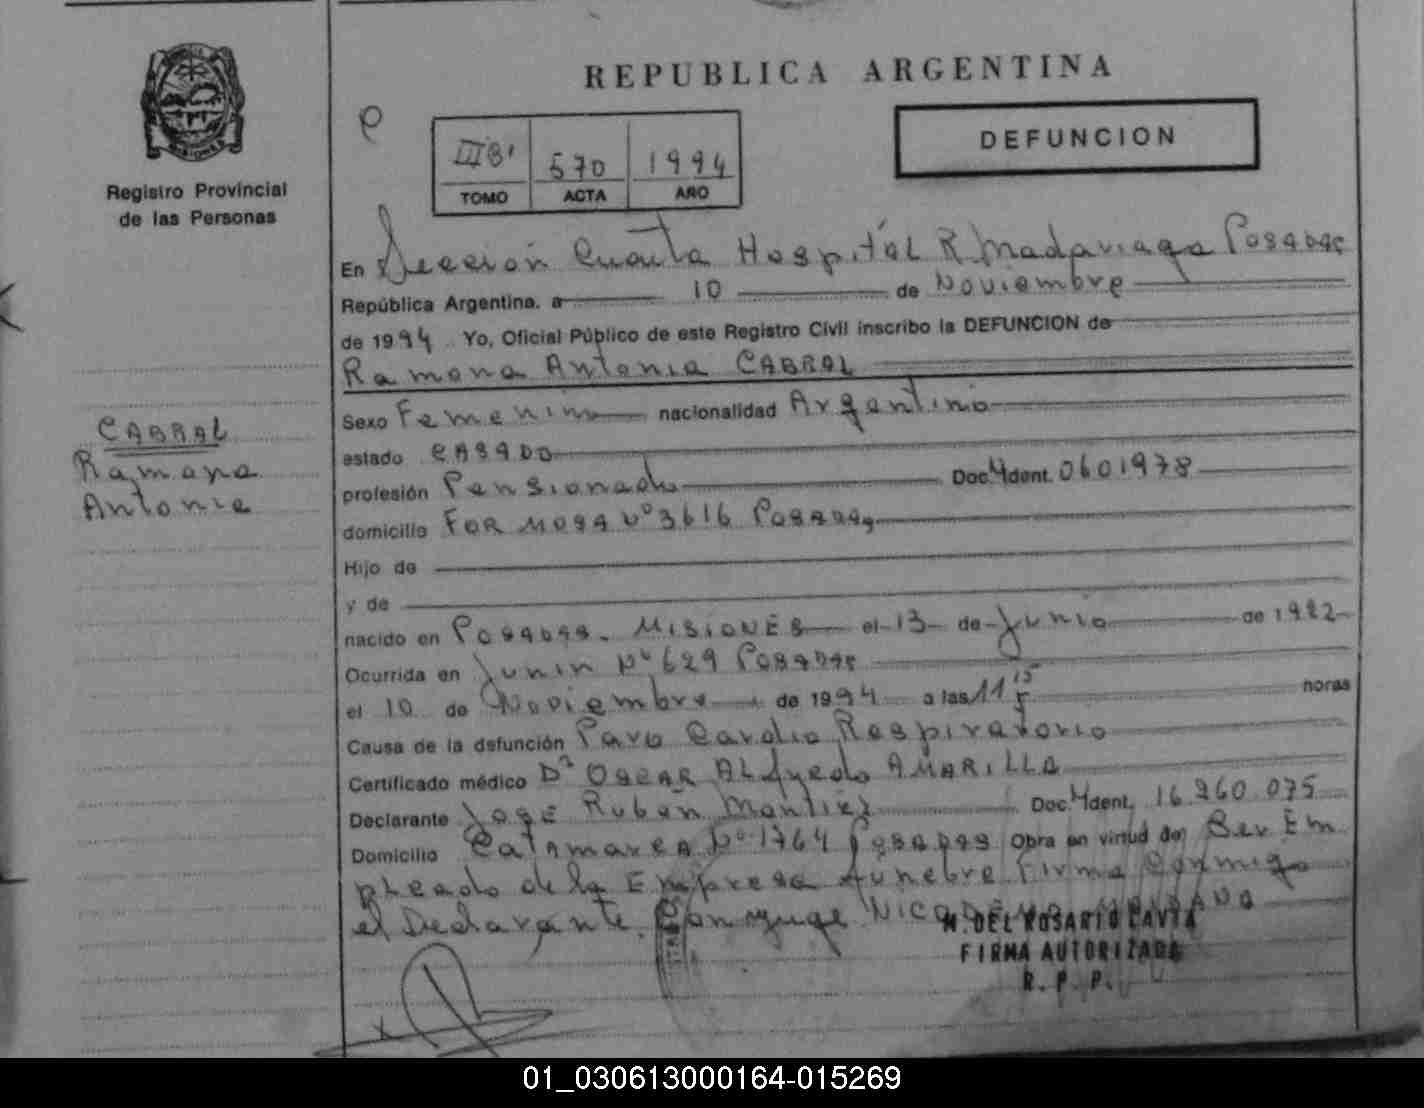 REPUBLICA ARGENTINA
MISIONES
Registro Provincial
de las Personas
III B' 570 1994
TOMO ACTA AÑO
DEFUNCION
En Sección Cuarta Hospital R Madariaga Posadas
República Argentina. a 10 de Noviembre
de 1994 Yo, Oficial Público de este Registro Civil inscribo la DEFUNCION de
Ramona Antonia CABRAL
Sexo Femenino nacionalidad Argentino
estado CASADO
profesión Pensionado Doc. Ident. 0601978
domicilio FORMOSA Nº 3616 Posadas
Hijo de
y de
nacido en Posadas - MISIONES el 13 de Junio de 1922
Ocurrida en Junin Nº 629 Posadas
el 10 de Noviembre de 1994 a las 11 15 horas
Causa de la defunción Paro Cardio Respiratorio
Certificado médico Dr OSCAR ALfredo AMARILLA
Declarante José Rubén Doc. Ident. 16.260.075
Domicilio Catamarca Nº 1764 Posadas Obra en virtud de Ser Em
pleado de la Empresa funebre Firma Conmigo
el Declarante. Conyuge NICODEMO
M. DEL ROSARIO LAVIA
FIRMA AUTORIZADA
R. P. P.
CABRAL
Ramona
Antonia
01_030613000164-015269